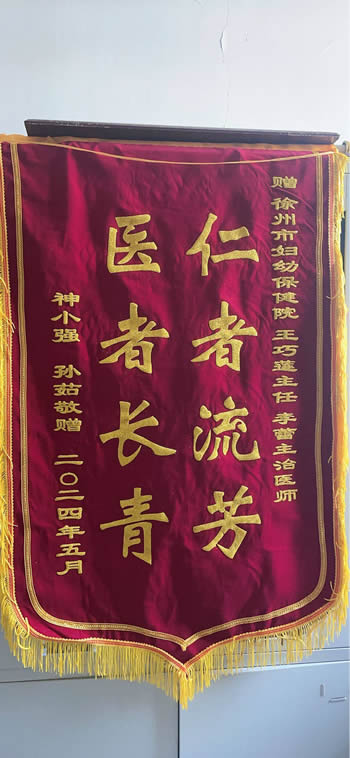 赠 徐州市妇幼保健院 王巧莲主任 李蕾主治医师
仁者流芳
医者长青
神小强 孙茹敬赠 二〇二四年五月